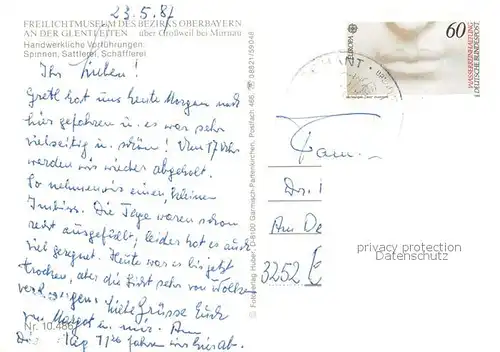 23.5.87
FREILICHTMUSEUM DES BEZIRKS OBERBAYERN
AN DER GLENTLEITEN über Großweil bei Murnau
Handwerkliche Vorführungen:
Spinnen, Sattlerei, Schäfflerei
Ihr Lieben!
Gretl hat uns heute Morgen nach
hier gefahren u. es war sehr
vielseitig u. schön! Um 17 Uhr
werden wir wieder abgeholt.
So nehmen wir einen kleinen
Imbiss. Die Tage waren schon
recht ausgefüllt; leider hat es auch
viel geregnet. Heute war es bis jetzt
trocken, aber die Sicht sehr von Wolken
verhangen. Liebe Grüsse Euch
von Margot u. mir.
Tag 7/20 fahren wir hier ab.
Nr. 10.486
© Fotoverlag Huber · D-8100 Garmisch-Partenkirchen, Postfach 466, ☎ 08821/59048
EUROPA
60
WASSERREINHALTUNG
DEUTSCHE BUNDESPOST
Fam.
Am De
3252
privacy protection
Datenschutz